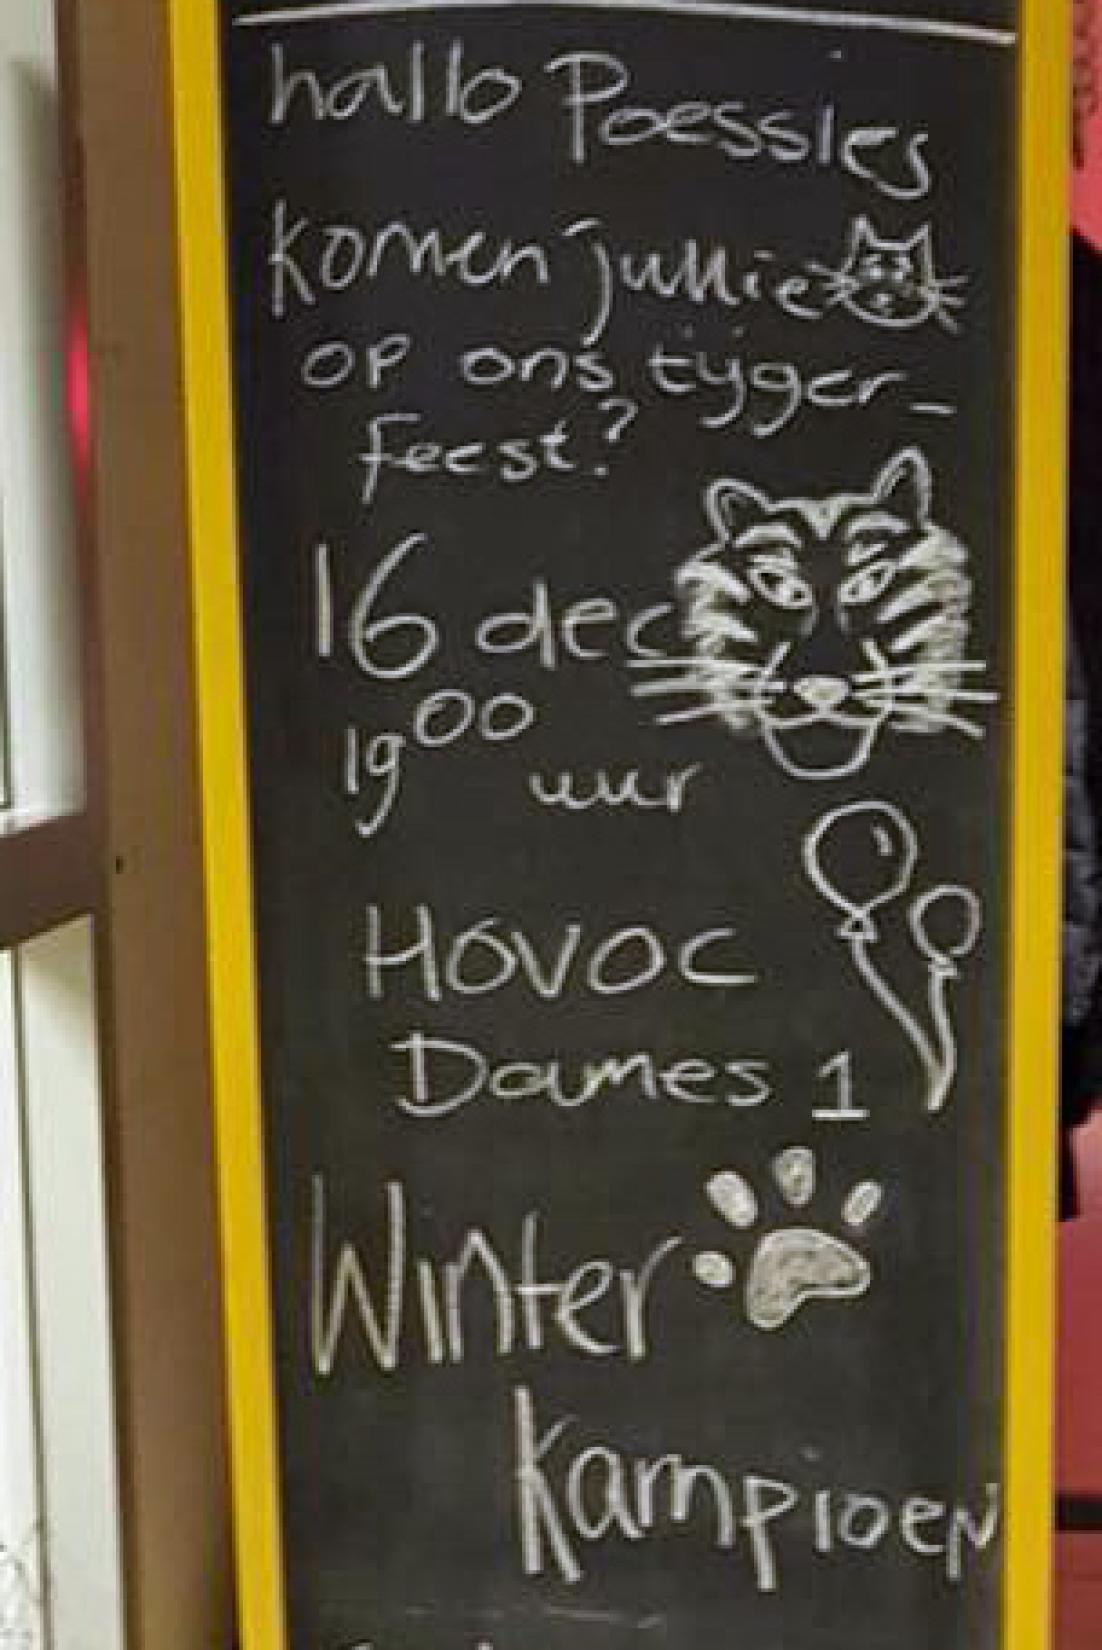 hallo Poessies
komen jullie
op ons tijger-
feest?
16 dec
19 00 uur
HOVOC
Dames 1
Winter
Kampioen